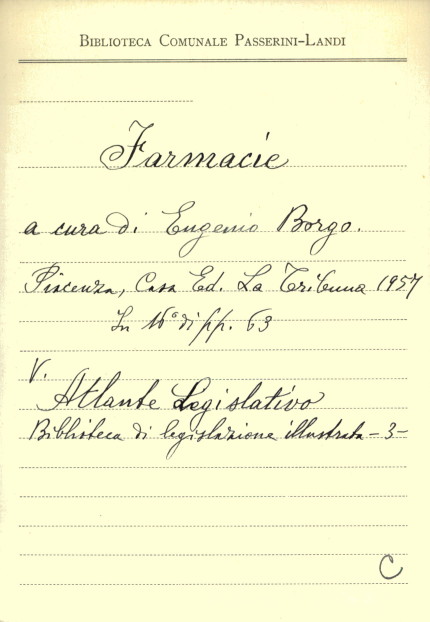 BIBLIOTECA COMUNALE PASSERINI-LANDI
Farmacie
a cura di Eugenio Borgo.
Piacenza, Casa Ed. La Tribuna 1957
In 16° di pp. 63
V.
Atlante Legislativo
Biblioteca di legislazione illustrata - 3 -
C